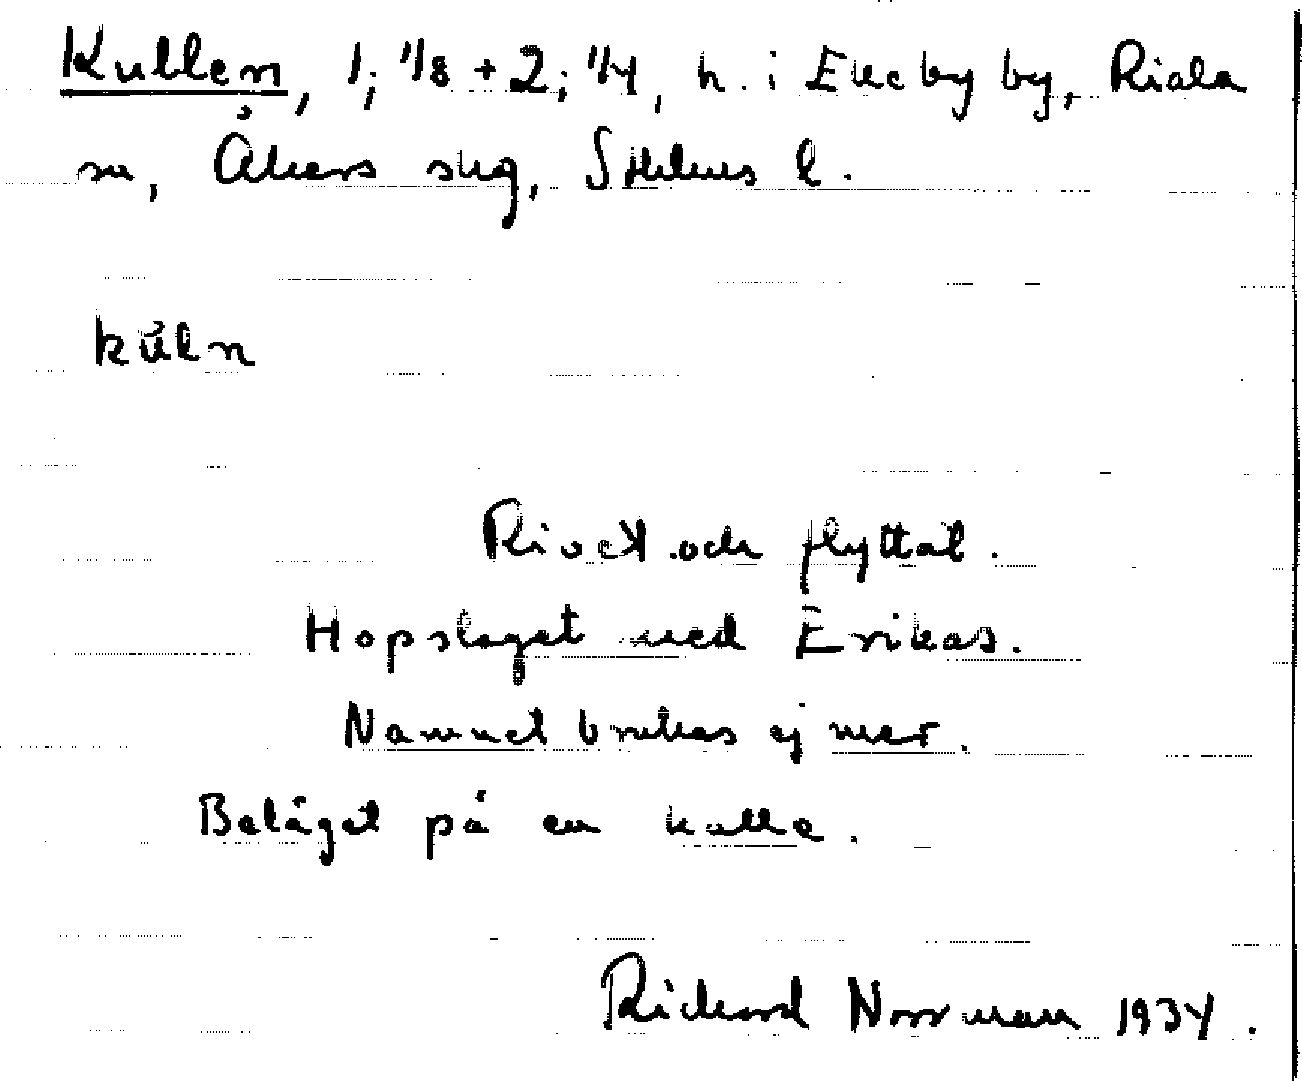 Kullen, 1; 1/8 + 2; 1/4, h. i Ekeby by, Riala
sn, Åkers skg, Sthlms l.
kŭln
Rivet och flyttat.
Hopslaget med Erikas.
Namnet brukas ej mer.
Beläget på en kulle.
Richard Norrman 1934.